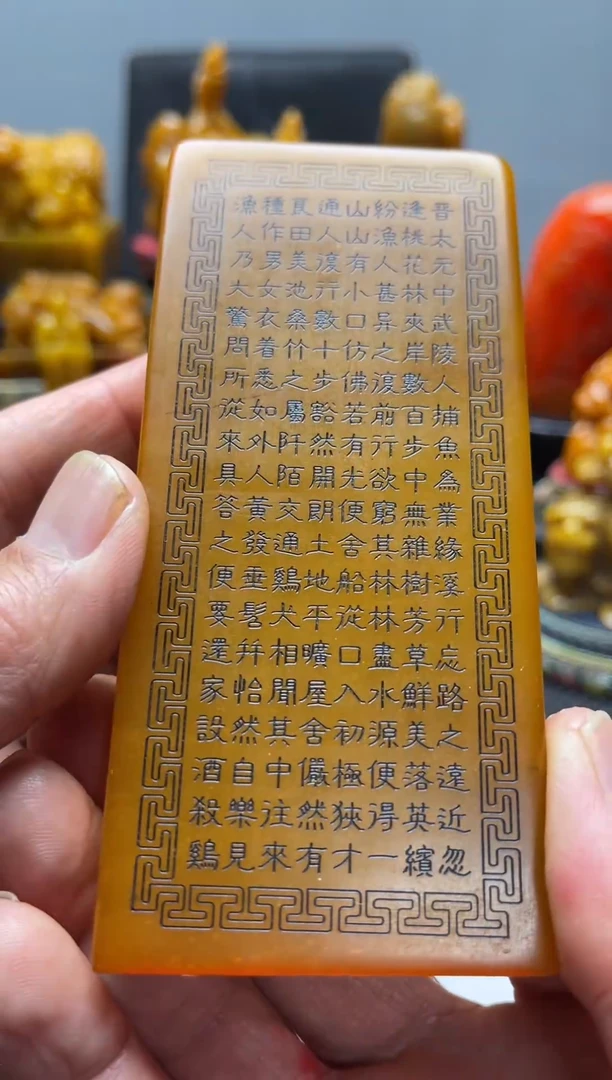 晋太元中武陵人捕魚為業緣溪行忘路之遠近忽
逢桃花林夾岸數百步中無雜樹芳草鮮美落英繽
紛漁人甚異之復前行欲窮其林林盡水源便得一
山山有小口仿佛若有光便舍船從口入初極狹才
通人復行數十步豁然開朗土地平曠屋舍儼然有
良田美池桑竹之屬阡陌交通鷄犬相聞其中往來
種作男女衣着悉如外人黃發垂髫并怡然自樂見
漁人乃大驚問所從來具答之便要還家設酒殺鷄